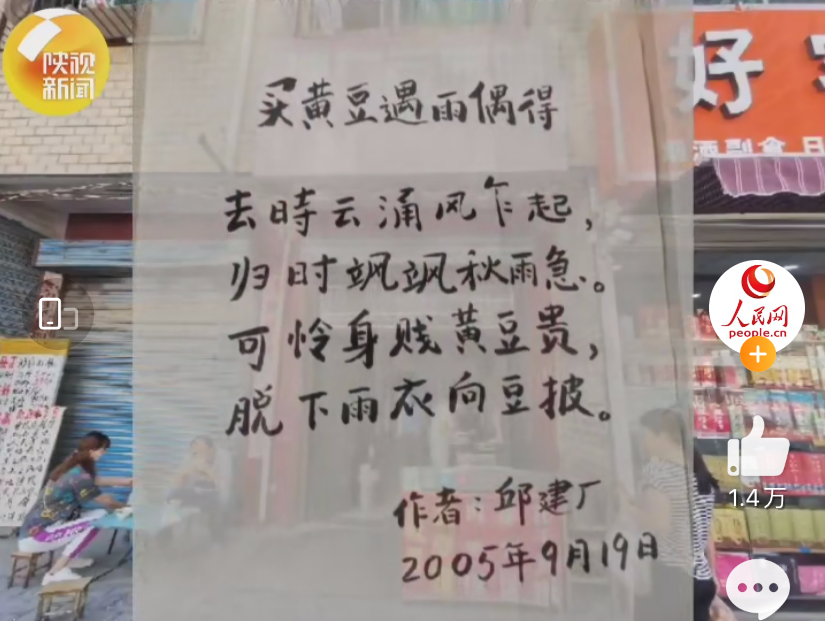 陕视
新闻
好
买黄豆遇雨偶得
去時云涌风乍起，
归时飒飒秋雨急。
可怜身贱黄豆贵，
脱下雨衣向豆披。
作者：邱建厂
2005年9月19日
人民网
people.cn
1.4万